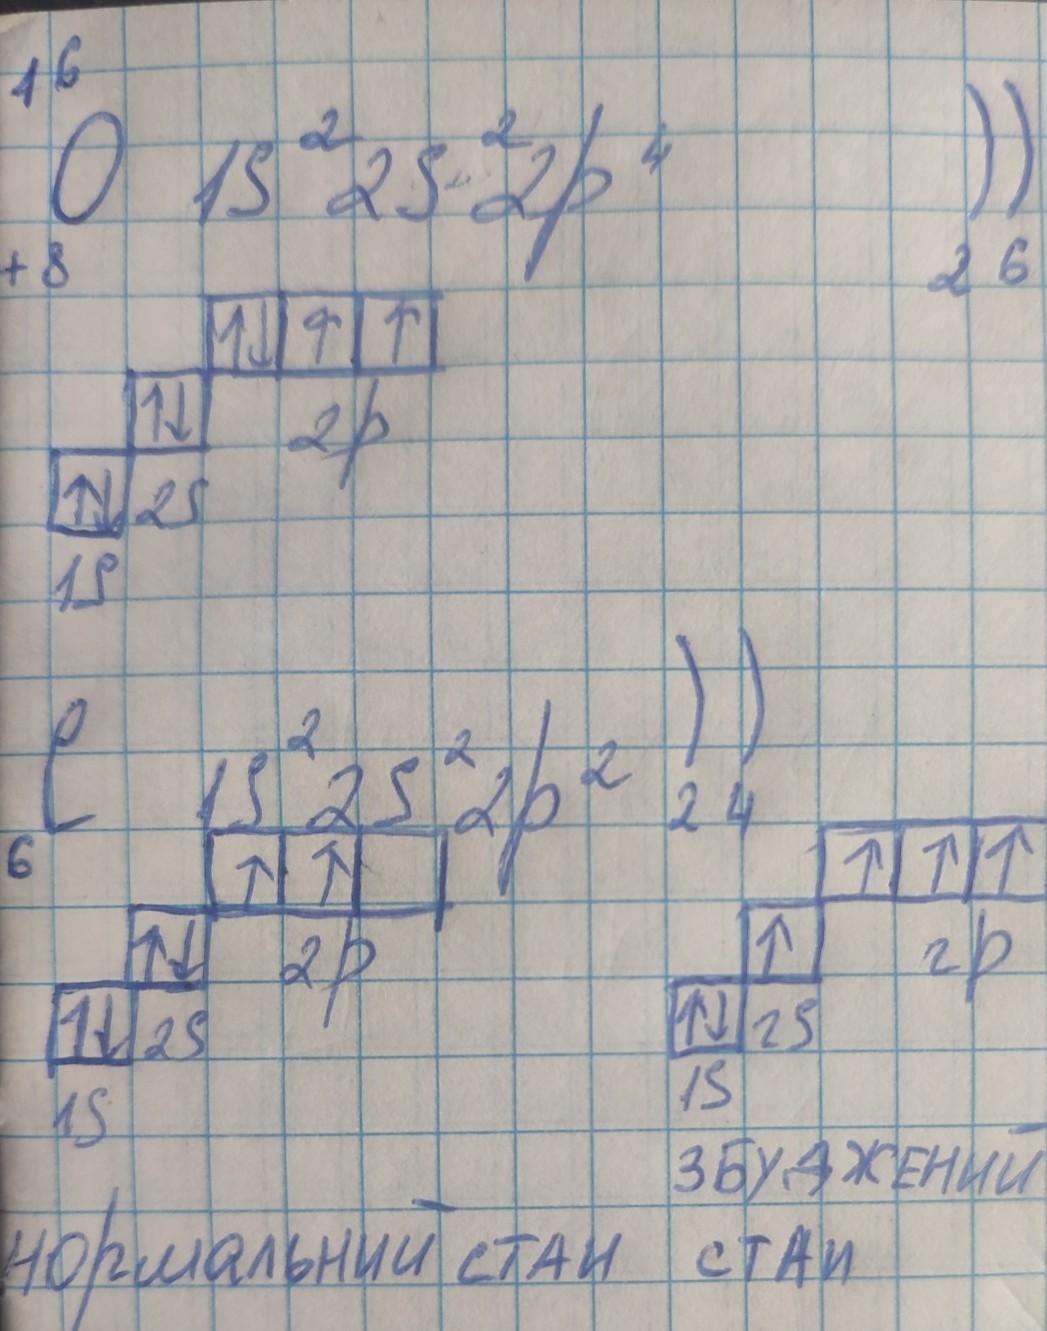 16
O 1S² 2S² 2p⁴ ))
+8 2 6
↑↓ ↑ ↑
↑↓ 2p
↑↓ 2S
1S
C 1S² 2S² 2p² ))
6 2 4
↑ ↑ ↑ ↑ ↑
↑↓ 2p ↑ 2p
↑↓ 2S ↑↓ 2S
1S 1S
ЗБУДЖЕНИЙ
НОРМАЛЬНИЙ СТАН СТАН